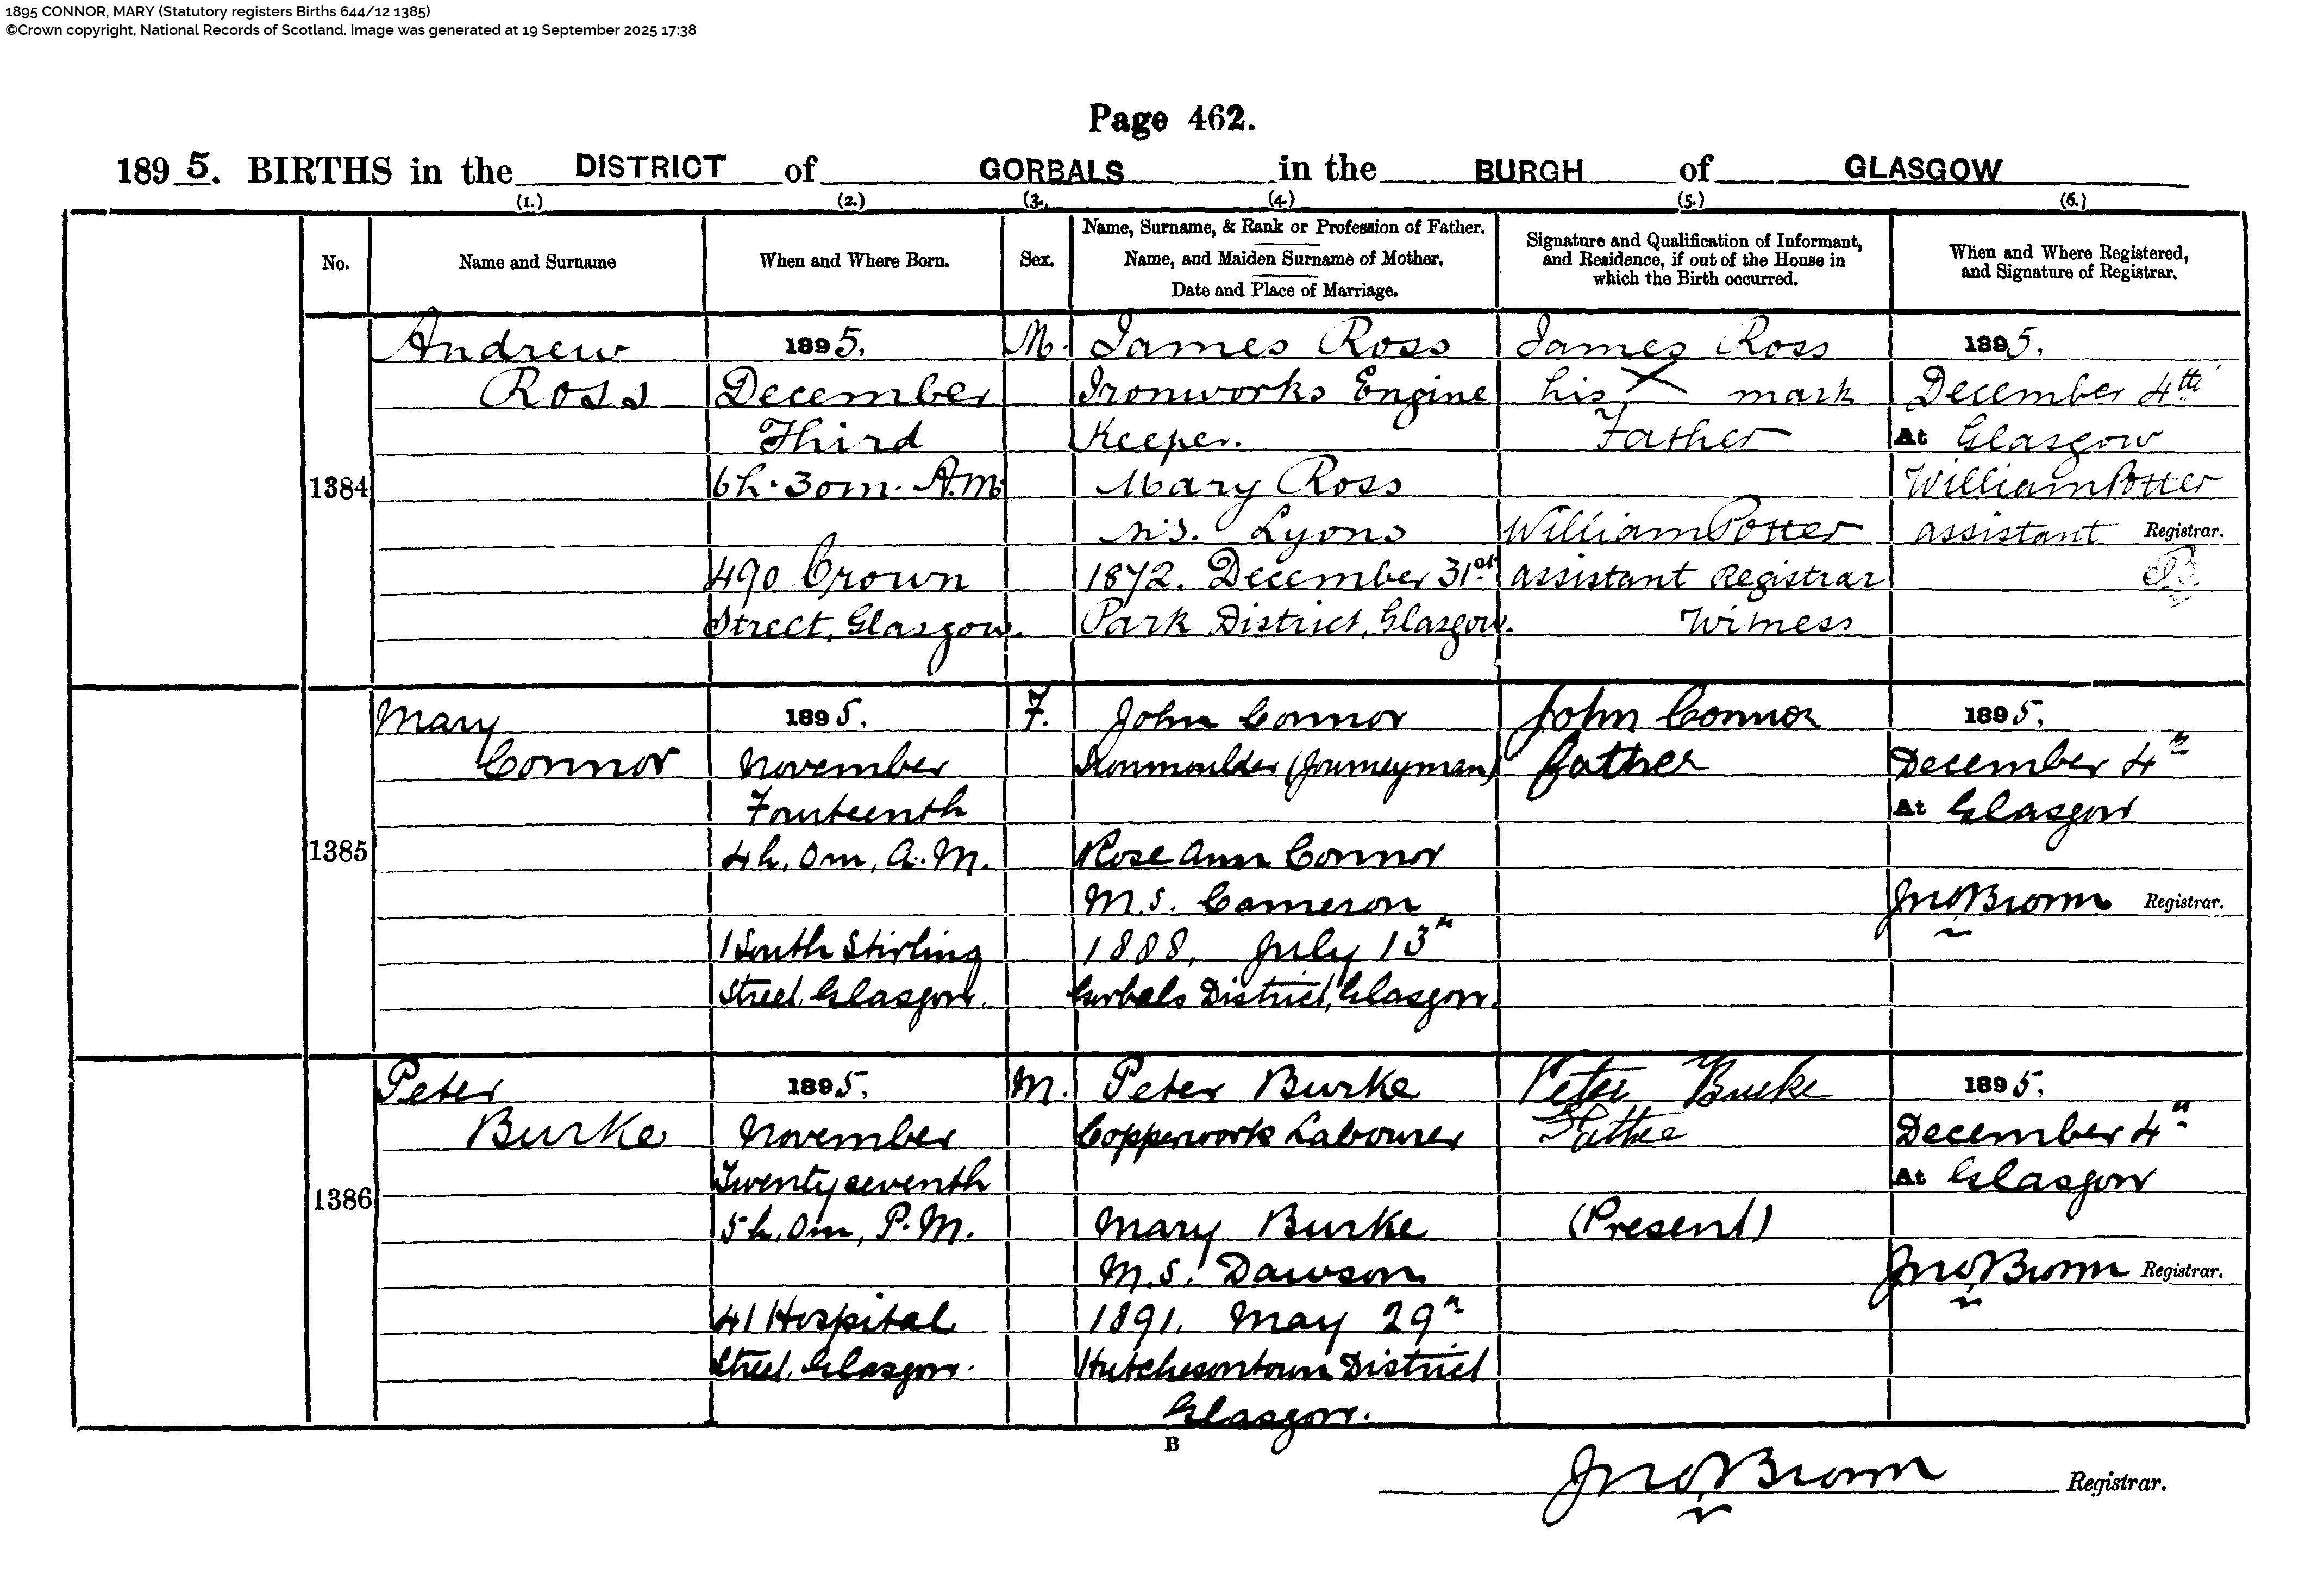 1895 CONNOR, MARY (Statutory registers Births 644/12 1385)
©Crown copyright, National Records of Scotland. Image was generated at 19 September 2025 17:38
Page 462.
1895. BIRTHS in the DISTRICT of GORBALS in the BURGH of GLASGOW
(1.) (2.) (3. (4.) (5.) (6.)
No.
Name and Surname
When and Where Born.
Sex.
Name, Surname, & Rank or Profession of Father.
Name, and Maiden Surname of Mother.
Date and Place of Marriage.
Signature and Qualification of Informant,
and Residence, if out of the House in
which the Birth occurred.
When and Where Registered,
and Signature of Registrar.
1384
Andrew
Ross
1895.
December
Third
6h. 30m. A.M.
490 Crown
Street, Glasgow.
M.
James Ross
Ironworks Engine
Keeper.
Mary Ross
M.S. Lyons
1872. December 31st
Park District, Glasgow.
James Ross
his X mark
Father
William Potter
Assistant Registrar
Witness
1895.
December 4th
At Glasgow
William Potter
Assistant Registrar.
1385
Mary
Connor
1895.
November
Fourteenth
4h. 0m. A.M.
1 South Stirling
Street, Glasgow.
F.
John Connor
Ironmoulder (Journeyman)
Rose Ann Connor
M.S. Cameron
1888, July 13th
Gorbals District, Glasgow.
John Connor
father
1895.
December 4th
At Glasgow
Jno Brown Registrar.
1386
Peter
Burke
1895.
November
Twenty seventh
5h. 0m. P.M.
41 Hospital
Street, Glasgow.
M.
Peter Burke
Copperwork Labourer
Mary Burke
M.S. Dawson
1891. May 29th
Hutchesontown District
Glasgow.
Peter Burke
Father
(Present)
1895.
December 4th
At Glasgow
Jno Brown Registrar.
B
Jno Brown Registrar.